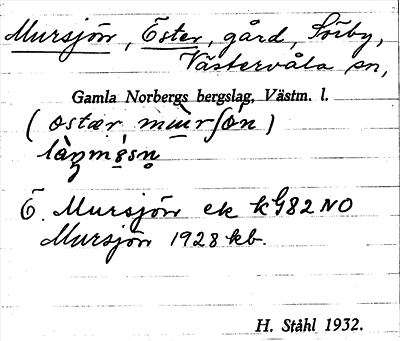 Mursjön, Öster, gård, Sörby,
Västervåla sn,
Gamla Norbergs bergslag, Västm. l.
Ö. Mursjön ek kG82NO
Mursjön 1928 kb.
H. Ståhl 1932.